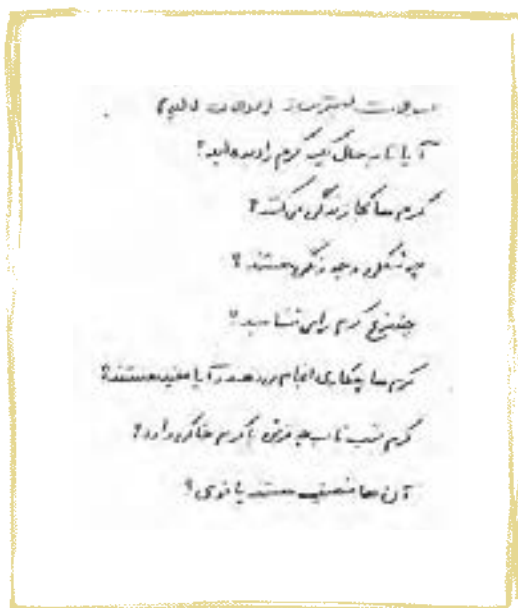 آیا تا به حال یک کرم را دیده‌اید؟
کرم ها کجا زندگی می‌کنند؟
چه شکلی و چه رنگی هستند؟
چند نوع کرم را می‌شناسید؟
کرم ها چکاری انجام می‌دهند و آیا مفید هستند؟
کرم شب تاب چه فرقی با کرم خاکی دارد؟
آن ها ضعیف هستند یا قوی؟